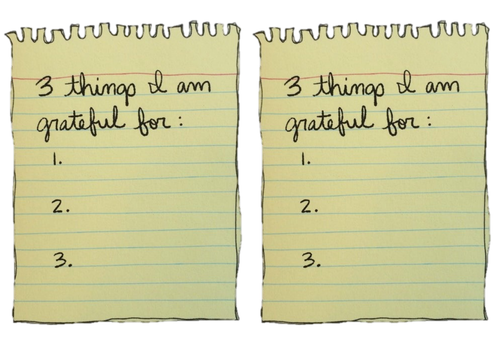 3 things I am
grateful for:
1.
2.
3.
3 things I am
grateful for:
1.
2.
3.